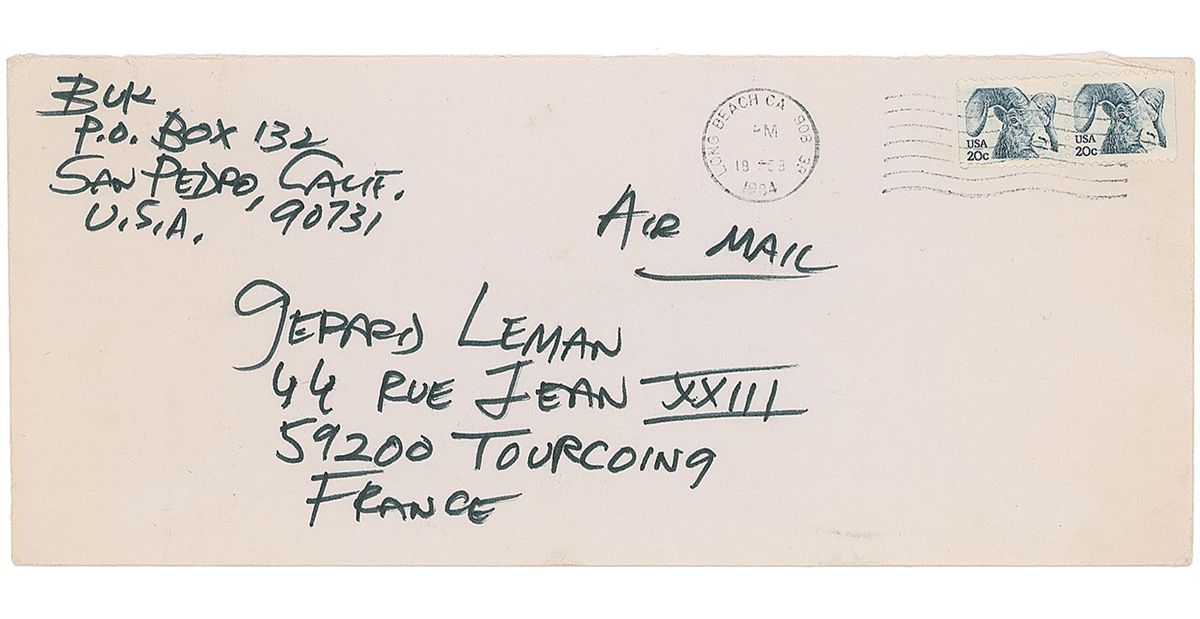 Buk
P.O. BOX 132
SAN PEDRO, CALIF.
U.S.A. 90731
LONG BEACH CA 908
PM
1984
USA
20c
USA
20c
AIR MAIL
GERARD LEMAN
44 RUE JEAN XXIII
59200 TOURCOING
FRANCE